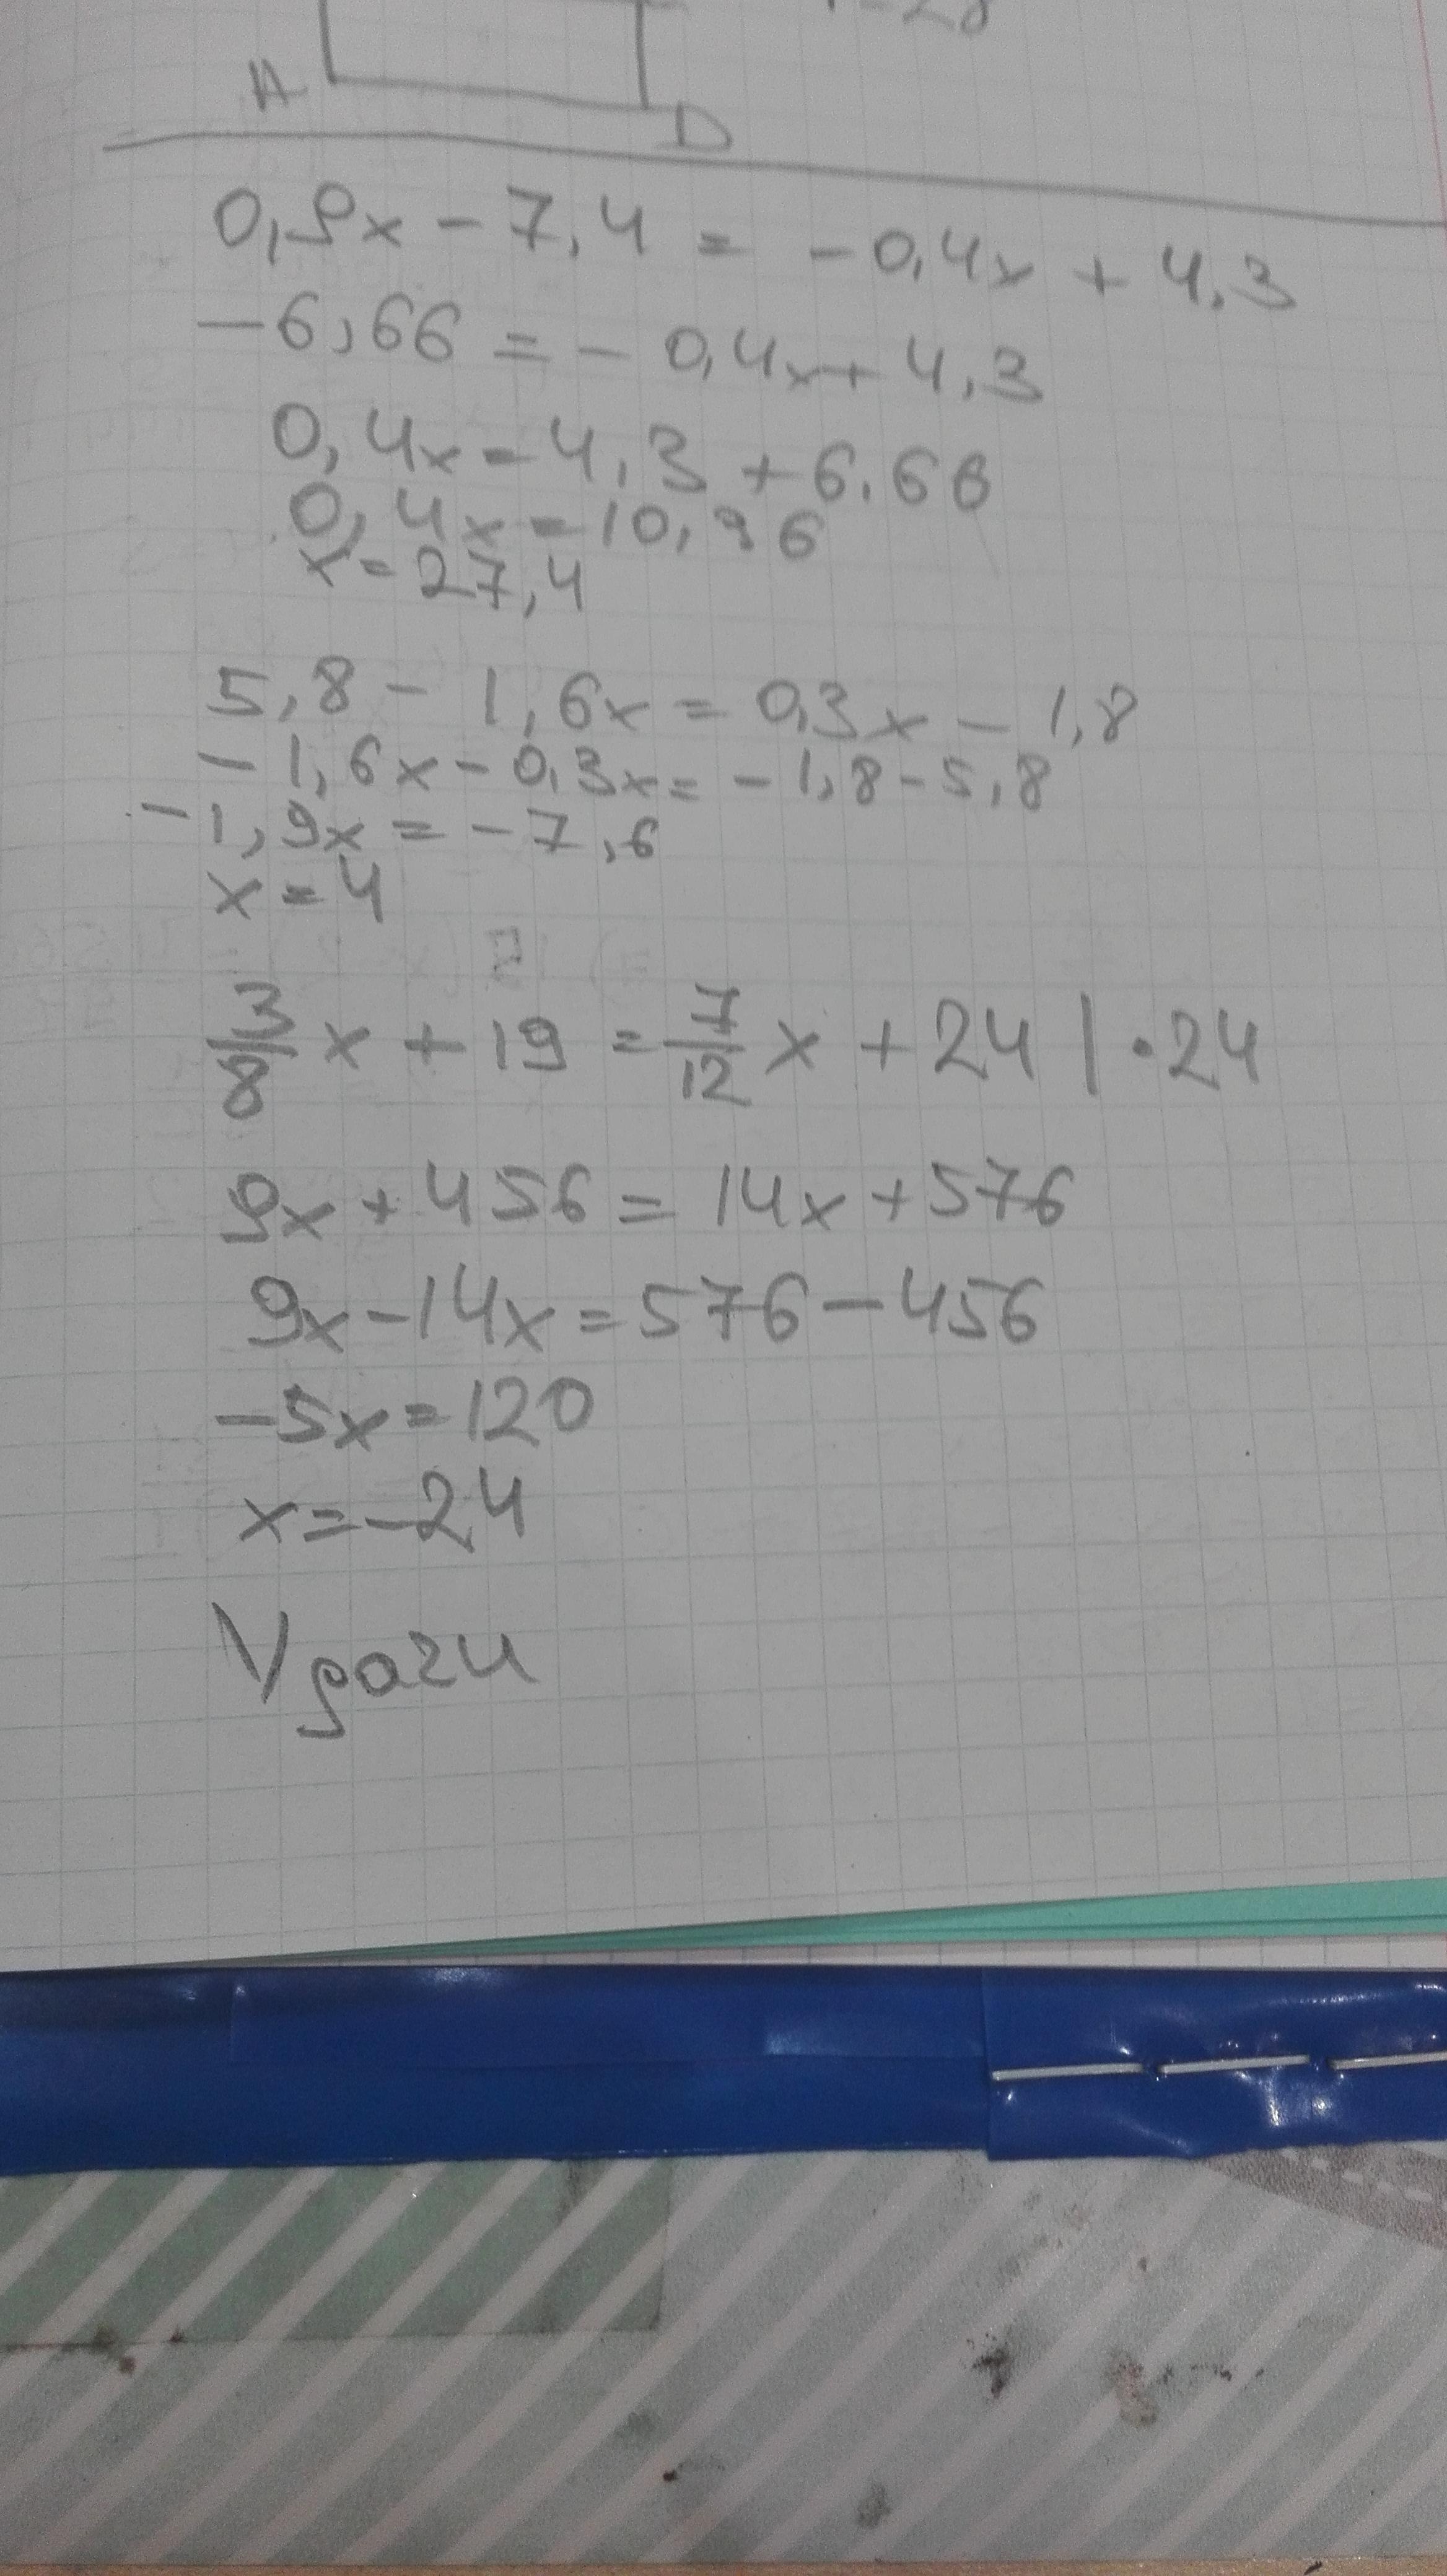 A
D
0,9x - 7,4 = - 0,4x + 4,3
- 6,66 = - 0,4x + 4,3
0,4x = 4,3 + 6.66
0,4x = 10,96
x = 27,4
5,8 - 1,6x = 0,3x - 1,8
- 1,6x - 0,3x = - 1,8 - 5,8
- 1,9x = - 7,6
x = 4
3/8 x + 19 = 7/12 x + 24 | • 24
9x + 456 = 14x + 576
9x - 14x = 576 - 456
- 5x = 120
x = - 24
Удачи